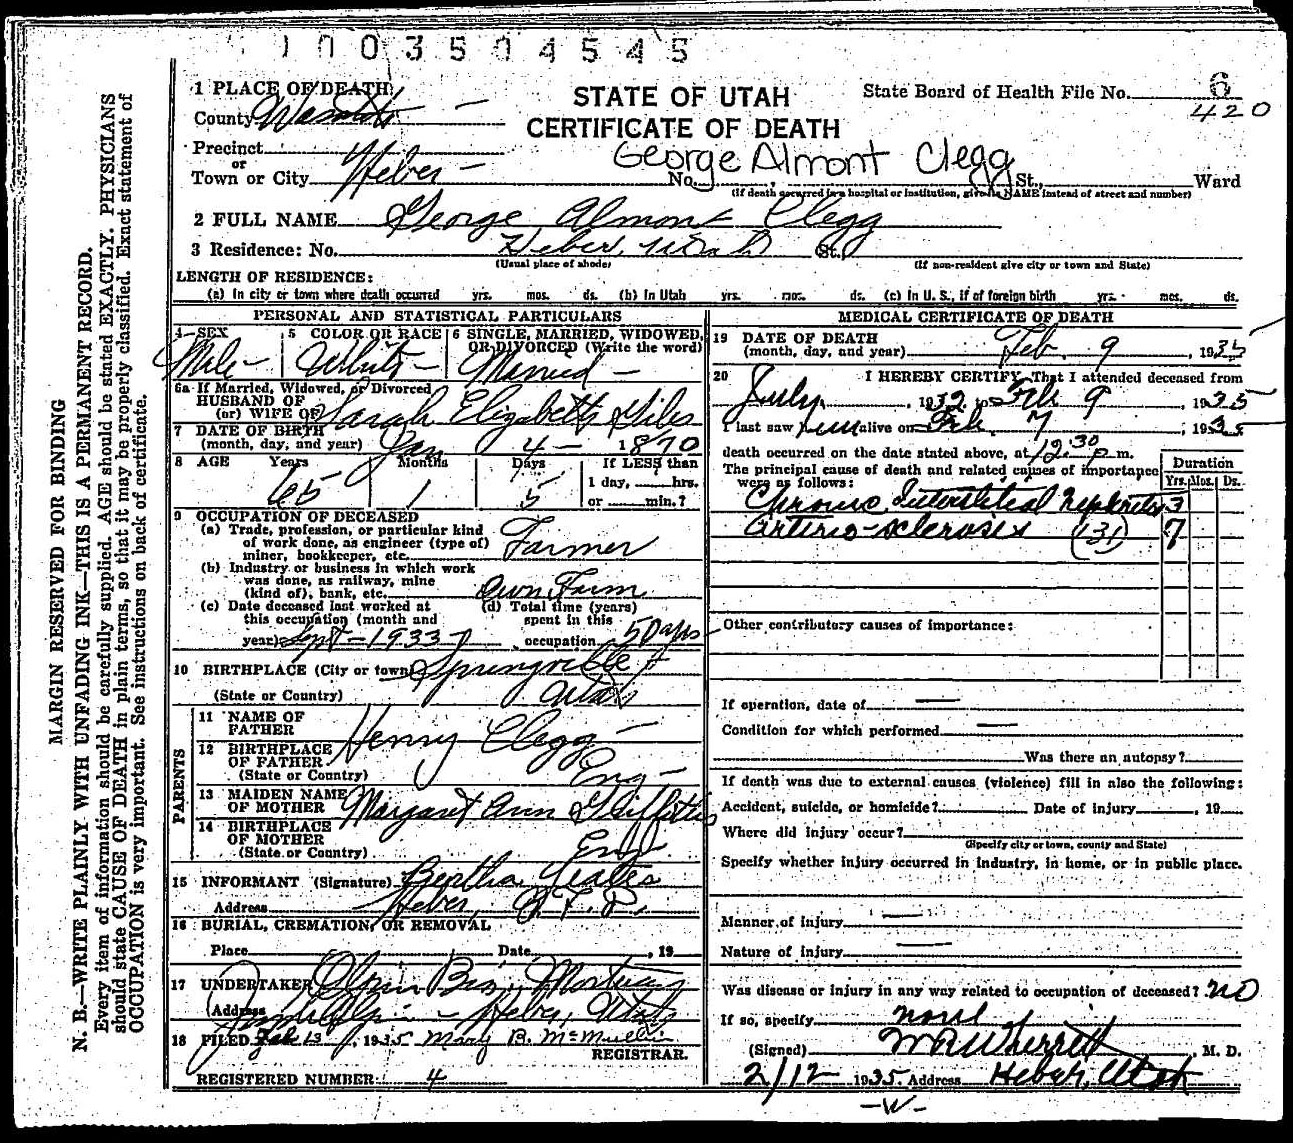 1003504545
1 PLACE OF DEATH
County Wasatch
Precinct
or
Town or City Heber
STATE OF UTAH
CERTIFICATE OF DEATH
State Board of Health File No. 6
420
George Almont Clegg
No. , St., Ward
(If death occurred in a hospital or institution, give its NAME instead of street and number)
2 FULL NAME George Almont Clegg
3 Residence: No. Heber, Utah St.
(Usual place of abode) (If non-resident give city or town and State)
LENGTH OF RESIDENCE:
(a) In city or town where death occurred yrs. mos. ds. (b) In Utah yrs. mos. ds. (c) In U. S., if of foreign birth yrs. mos. ds.
PERSONAL AND STATISTICAL PARTICULARS
4 SEX Male
5 COLOR OR RACE White
6 SINGLE, MARRIED, WIDOWED, OR DIVORCED (Write the word) Married
6a If Married, Widowed, or Divorced
HUSBAND OF
(or) WIFE OF Sarah Elizabeth Giles
7 DATE OF BIRTH
(month, day, and year) Jan 4 - 1870
8 AGE Years Months Days If LESS than
65 1 5 1 day, hrs.
or min.?
9 OCCUPATION OF DECEASED
(a) Trade, profession, or particular kind
of work done, as engineer (type of)
miner, bookkeeper, etc. Farmer
(b) Industry or business in which work
was done, as railway, mine
(kind of), bank, etc. Own Farm
(c) Date deceased last worked at
this occupation (month and
year) Sept - 1933
(d) Total time (years)
spent in this
occupation 50 yrs
10 BIRTHPLACE (City or town) Springville
(State or Country) Utah
PARENTS
11 NAME OF
FATHER Henry Clegg
12 BIRTHPLACE
OF FATHER
(State or Country) Eng
13 MAIDEN NAME
OF MOTHER Margaret Ann Griffiths
14 BIRTHPLACE
OF MOTHER
(State or Country) Eng
15 INFORMANT (Signature) Bertha
Address Heber,
16 BURIAL, CREMATION, OR REMOVAL
Place Date , 19
17 UNDERTAKER Olpin Bros Mortuary
Address Olpin - Heber, Utah
18 FILED Feb 13, 1935 Mary B. McMullin
REGISTRAR.
REGISTERED NUMBER 4
MEDICAL CERTIFICATE OF DEATH
19 DATE OF DEATH
(month, day, and year) Feb. 9, 1935
20 I HEREBY CERTIFY, That I attended deceased from
July, 1932, to Feb 9, 1935
I last saw him alive on Feb 7, 1935
death occurred on the date stated above, at 12:30 p m.
The principal cause of death and related causes of importance
were as follows:
Duration
Yrs. Mos. Ds.
Chronic Interstitial Nephritis 3
Arterio-sclerosis (131) 7
Other contributory causes of importance:
If operation, date of —
Condition for which performed —
Was there an autopsy?
If death was due to external causes (violence) fill in also the following:
Accident, suicide, or homicide? Date of injury , 19
Where did injury occur?
(Specify city or town, county and State)
Specify whether injury occurred in industry, in home, or in public place.
Manner of injury —
Nature of injury —
Was disease or injury in any way related to occupation of deceased? no
If so, specify none
(Signed) W R Wherritt, M. D.
2/12 1935 Address Heber, Utah
-W-
MARGIN RESERVED FOR BINDING
N. B.—WRITE PLAINLY WITH UNFADING INK—THIS IS A PERMANENT RECORD.
Every item of information should be carefully supplied. AGE should be stated EXACTLY. PHYSICIANS
should state CAUSE OF DEATH in plain terms, so that it may be properly classified. Exact statement of
OCCUPATION is very important. See instructions on back of certificate.